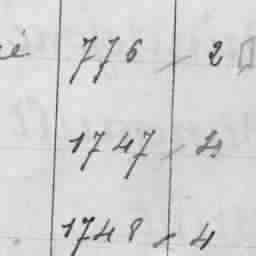 é 776 - 2
1747 - 4
1748 - 4